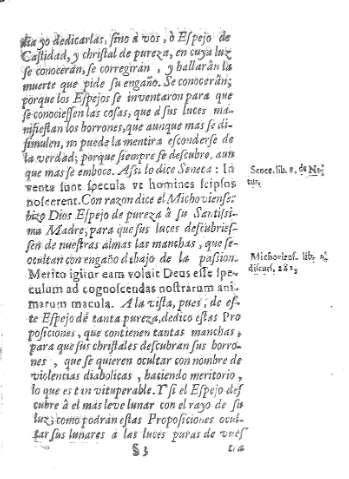 dia yo dedicarlas, sino a vos, ò Espejo de
Castidad, y christal de pureza, en cuya luz
se conocerán, se corregirán, y hallarán la
muerte que pide su engaño. Se conocerán;
porque los Espejos se inventaron para que
se conociessen las cosas, que á sus luces ma-
nifiestan los borrones, que aunque mas se di-
simulen, no puede la mentira esconderse de
la verdad; porque siempre se descubre, aun
que mas se emboce. Assi lo dice Seneca: In
venta sunt specula vt homines seipsos
noscerent. Con razon dice el Michoviense:
hizo Dios Espejo de pureza á su Santissi-
ma Madre, para que sus luces descubries-
sen de nuestras almas las manchas, que se
ocultan con engaño debajo de la passion.
Merito igitur eam voluit Deus esse spe-
culum ad cognoscendas nostrarum ani-
marum macula. A la vista, pues, de es-
te Espejo de tanta pureza, dedico estas Pro
posiciones, que contienen tantas manchas,
para que sus christales descubran sus borro-
nes, que se quieren ocultar con nombre de
violencias diabolicas, haciendo meritorio,
lo que es tan vituperable. Y si el Espejo des
cubre á el mas leve lunar con el rayo de su
luz; como podrán estas Proposiciones ocul-
tar sus lunares a las luces puras de vues
§ 3
Senec. lib. 1. de Na
tur.
Michoviens. lib.
discurs. 1813